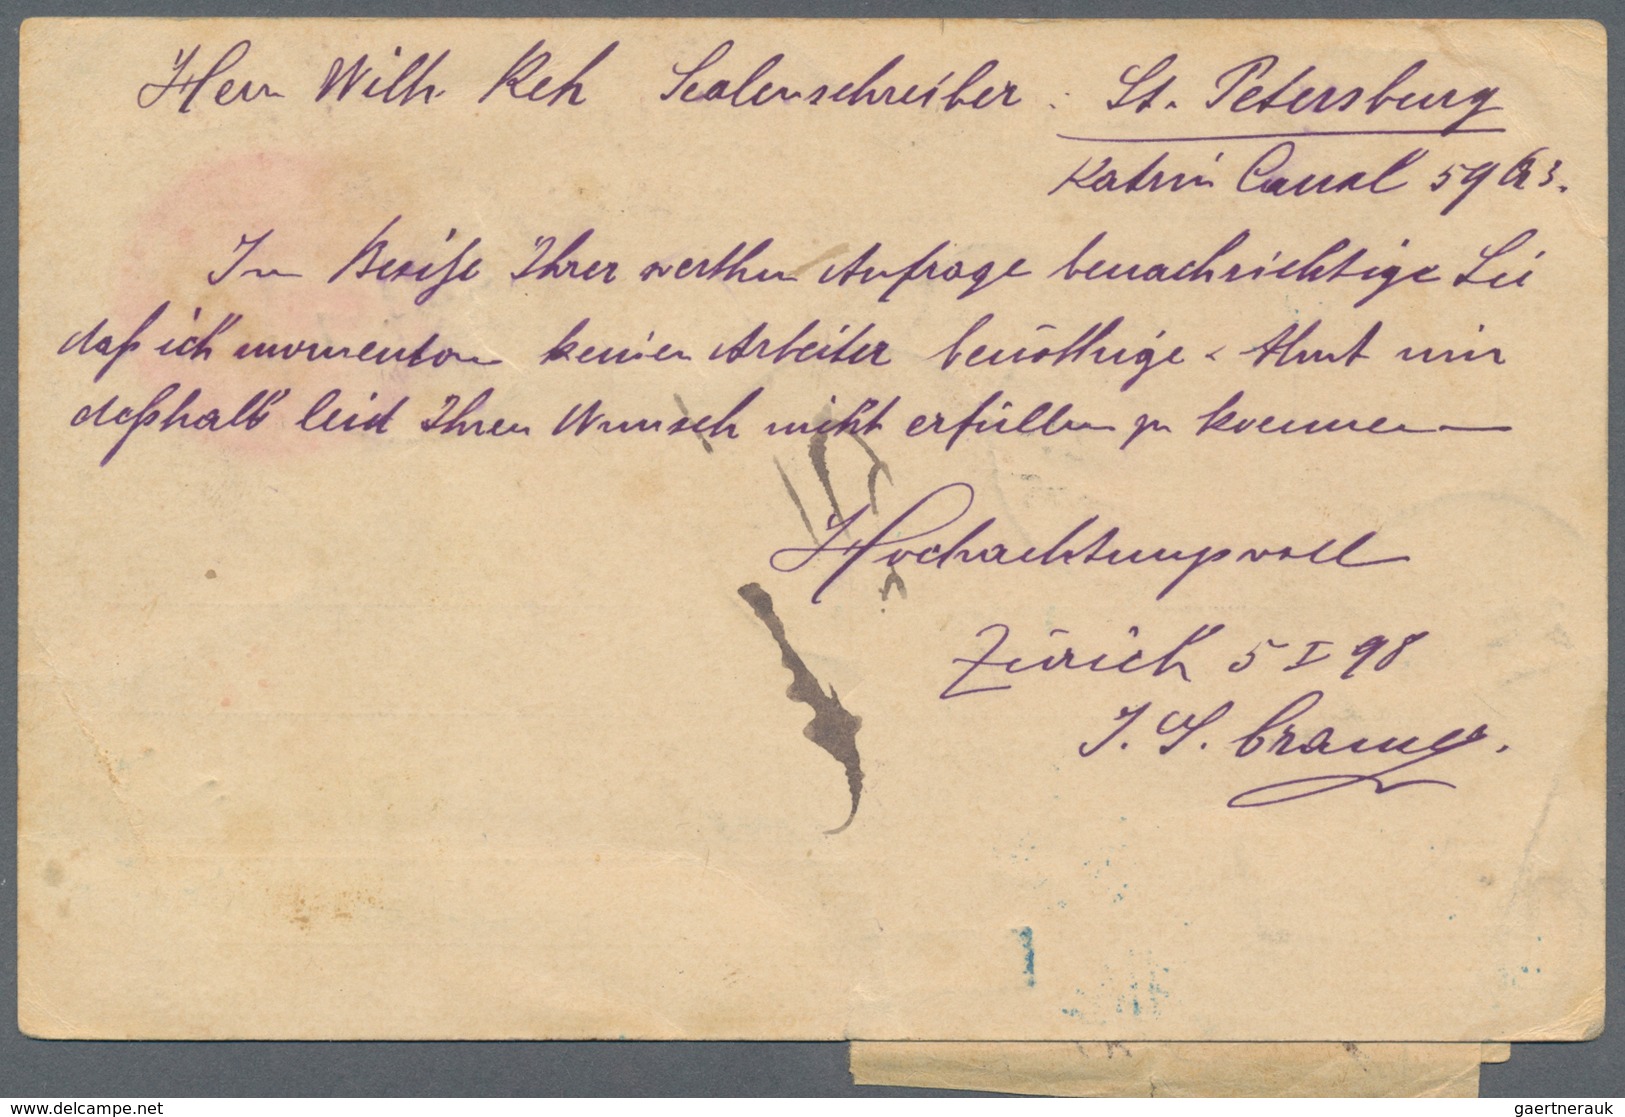 Herrn Wilh. Reh Scalenschreiber. St. Petersburg
Katrin Canal 59
Im Besitze Ihrer werthen Anfrage benachrichtige Sie
daß ich momentan keinen Arbeiter benöthige. Thut mir
deßhalb leid Ihren Wunsch nicht erfüllen zu koennen
Hochachtungsvoll
Zürich 5 I 98
J. S. Cramer.
gaertnerauk @ delcampe.net